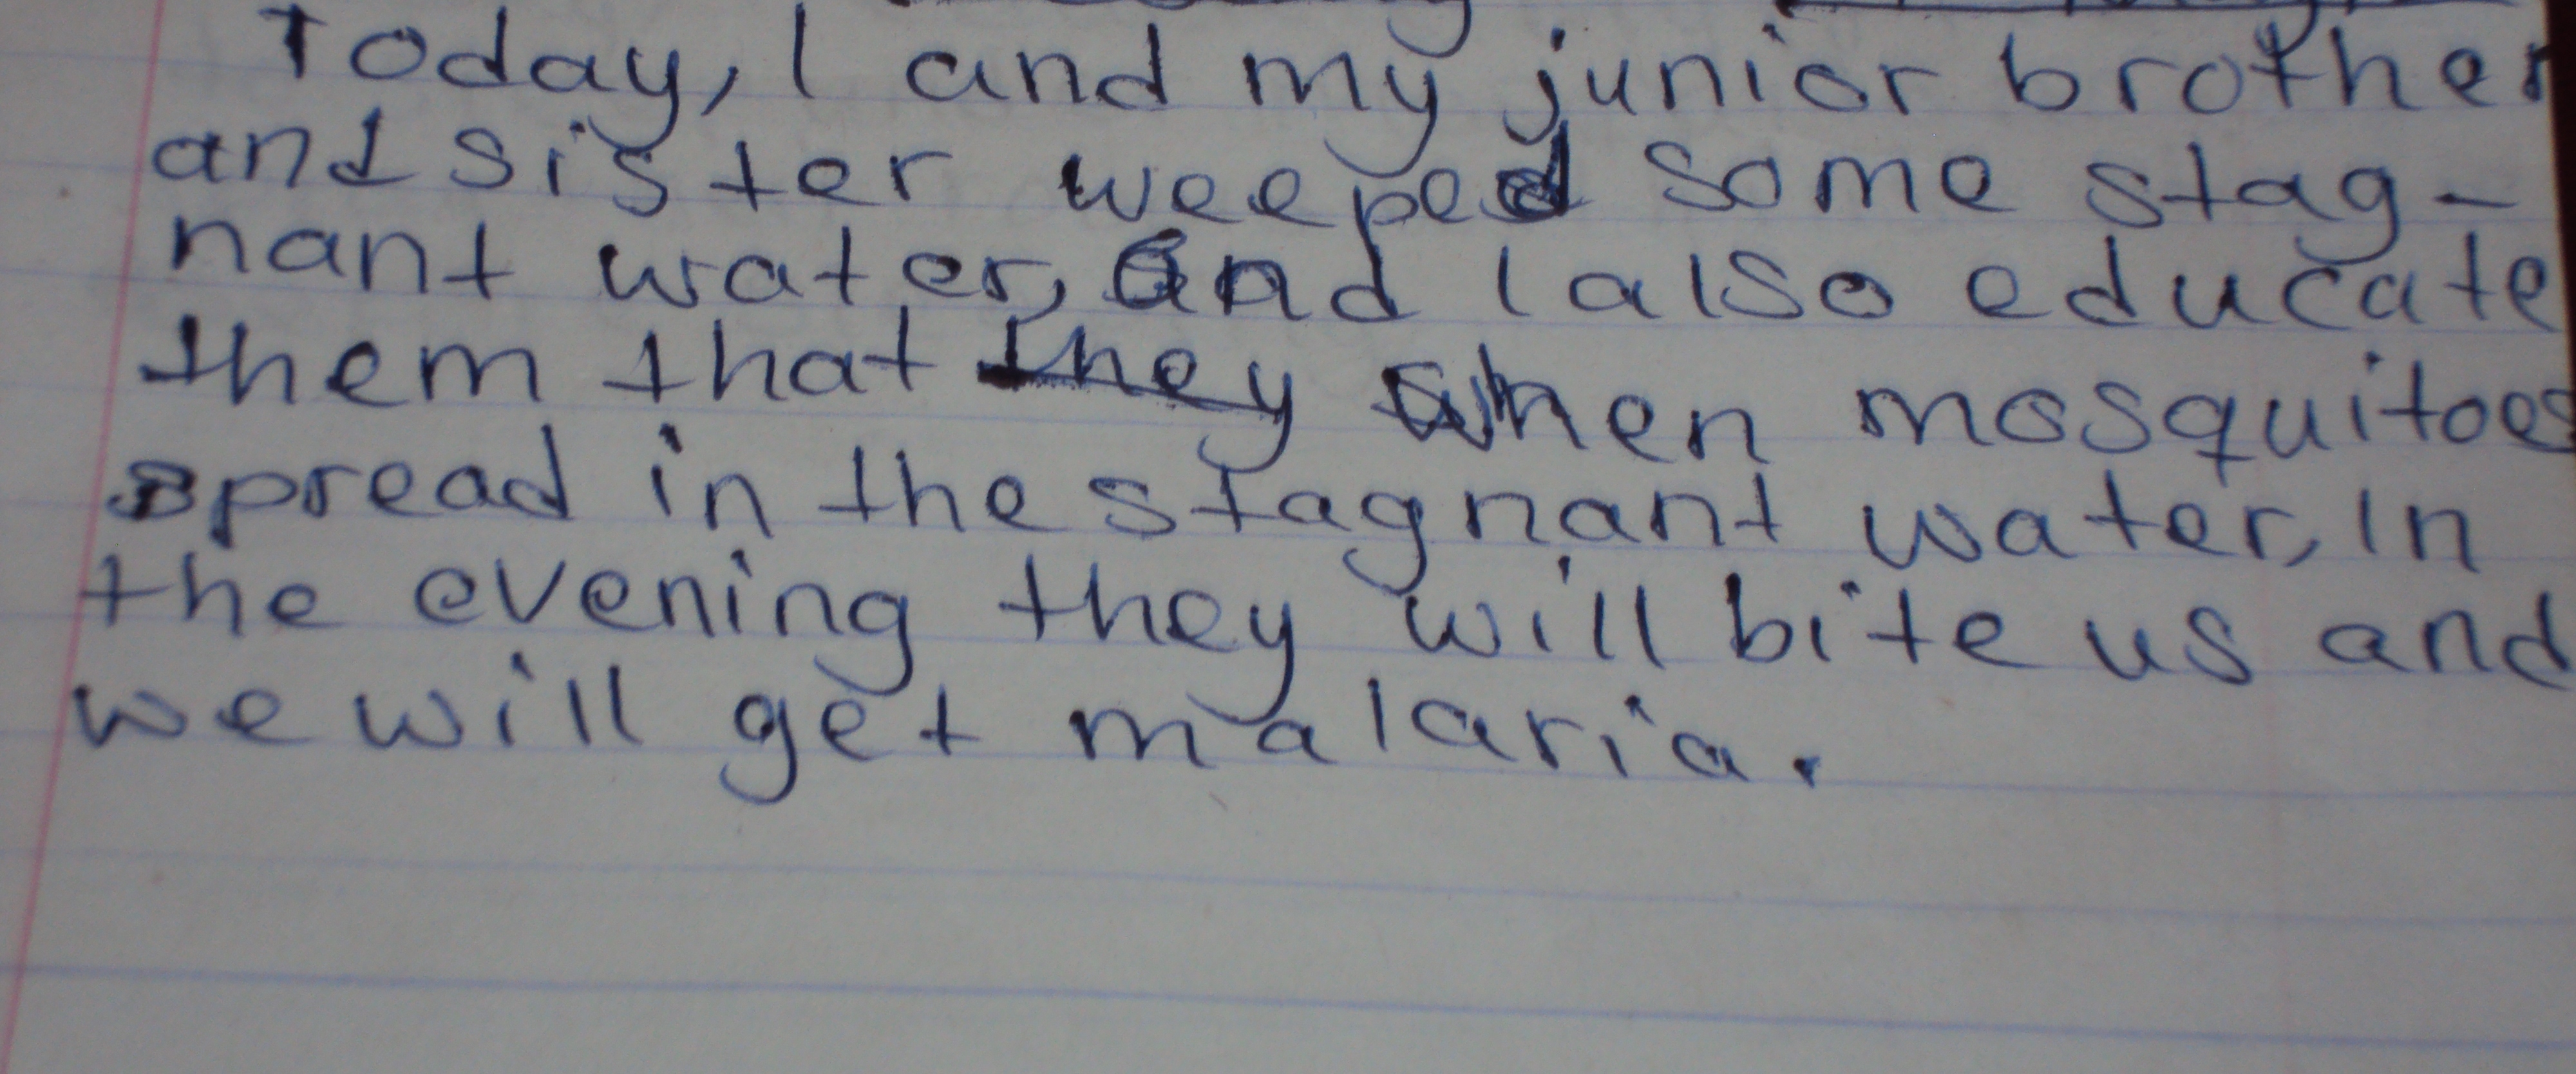 Today, I and my junior brother
and sister weeped some stag-
nant water, and I also educate
them that they when mosquitoes
spread in the stagnant water, In
the evening they will bite us and
we will get malaria.